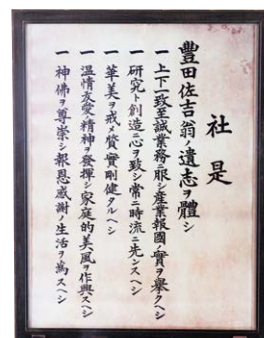 社是
豐田佐吉翁ノ遺志ヲ體シ
一 上下一致至誠業務ニ服シ產業報國ノ實ヲ擧クヘシ
一 研究ト創造ニ心ヲ致シ常ニ時流ニ先ンスヘシ
一 華美ヲ戒メ質實剛健タルヘシ
一 溫情友愛精神ヲ發揮シ家庭的美風ヲ作興スヘシ
一 神佛ヲ尊崇シ報恩感謝ノ生活ヲ爲スヘシ